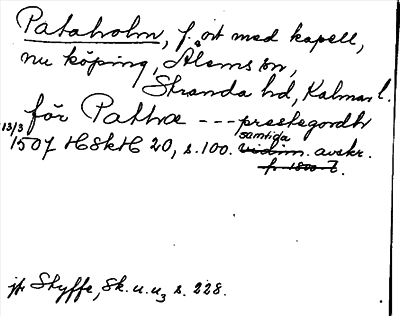 Pataholm, f. ort med kapell,
nu köping, Ålems sn,
Stranda hd, Kalmar l.
för Pathæ --- prestegordh
13/3 1507 HSkH 20, s. 100. samtida vidim. avskr.
f. 1500-t.
jfr Styffe, Sk. u. u3 s. 228.